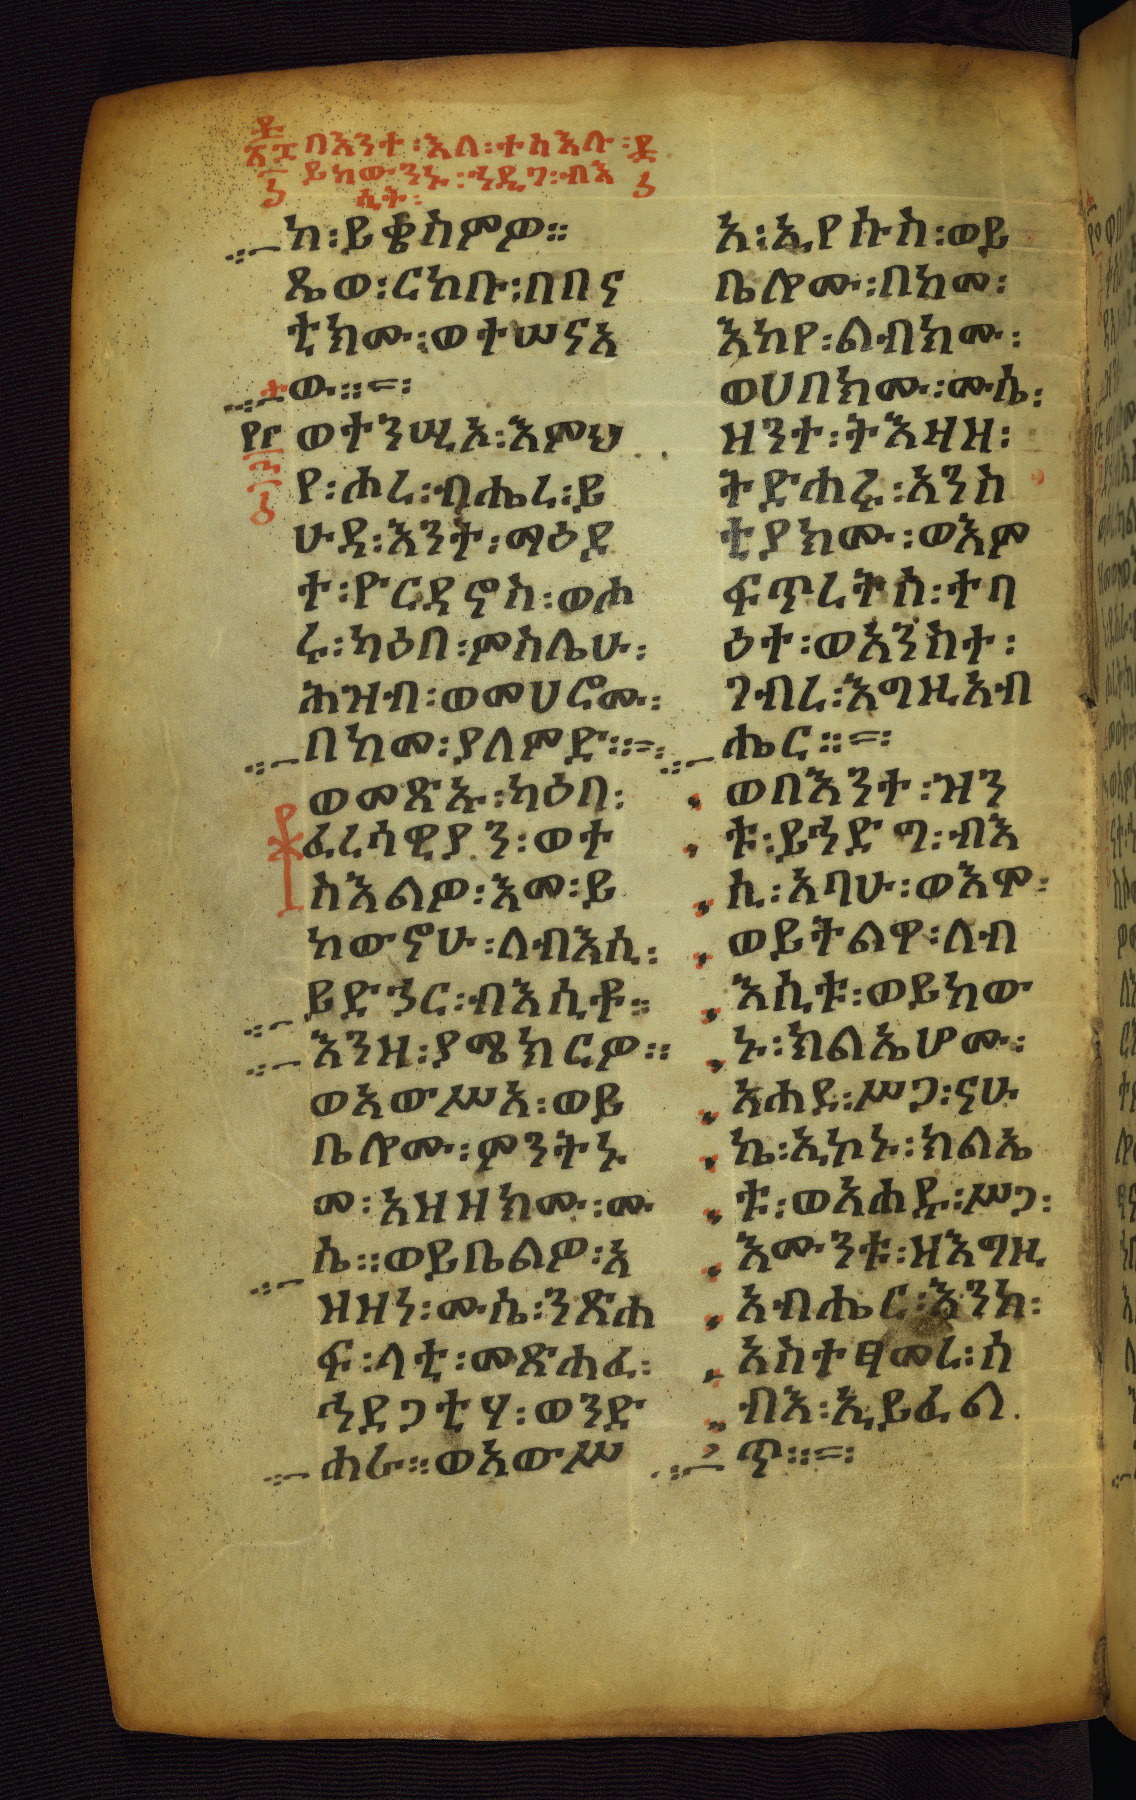 በእንተ ፡ እለ ፡ ተስእሉ ፡
ይከውንኑ ፡ ኀዲግ ፡ ብእ
ሲት ፡
ከ ፡ ይቄስምዎ ።
ጼው ፡ ርከቡ ፡ በበይና
ቲክሙ ፡ ወተሠናአ
ው ። = ፡
ወተንሢኦ ፡ እምህ
የ ፡ ሖረ ፡ ብሔረ ፡ ይ
ሁዳ ፡ እንተ ፡ ማዕዶ
ተ ፡ ዮርዳኖስ ፡ ወሖ
ሩ ፡ ካዕበ ፡ ምስሌሁ ፡
ሕዝብ ፡ ወመሀሮሙ ፡
በከመ ፡ ያለምድ ። = ፡
ወመጽኡ ፡ ካዕበ ፡
ፈረሳዊያን ፡ ወተ
ስእልዎ ፡ እመ ፡ ይ
ከውኖሁ ፡ ለብእሲ ፡
ይድኀር ፡ ብእሲቶ ።
እንዘ ፡ ያሜክርዎ ።
ወአውሥአ ፡ ወይ
ቤሎሙ ፡ ምንትኑ
መ ፡ አዝዘክሙ ፡ ሙ
ሴ ። ወይቤልዎ ፡ አ
ዝዘነ ፡ ሙሴ ፡ ንጽሐ
ፍ ፡ ላቲ ፡ መጽሐፈ ፡
ኀደጋቲሃ ፡ ወንድ
ሐራ ። ወአውሥ
አ ፡ ኢየሱስ ፡ ወይ
ቤሎሙ ፡ በከመ ፡
እከየ ፡ ልብክሙ ፡
ወሀበክሙ ፡ ሙሴ ፡
ዘንተ ፡ ትእዛዘ ፡
ትድሐሩ ፡ አንስ
ቲያክሙ ፡ ወእም
ፍጥረትሰ ፡ ተባ
ዕተ ፡ ወአንስተ ፡
ገብረ ፡ እግዚአብ
ሔር ። = ፡
ወበእንተ ፡ ዝን
ቱ ፡ ይኀድግ ፡ ብእ
ሲ ፡ አባሁ ፡ ወእሞ ፡
ወይትልዋ ፡ ለብ
እሲቱ ፡ ወይከው
ኑ ፡ ክልኤሆሙ ፡
አሐደ ፡ ሥጋ ፡ ናሁ
ኬ ፡ ኢኮኑ ፡ ክልኤ
ቱ ፡ ወአሐዱ ፡ ሥጋ ፡
እሙንቱ ፡ ዘእግዚ
አብሔር ፡ እንከ ፡
አስተፃመረ ፡ ሰ
ብእ ፡ ኢይፈል
ጥ ። = ፡